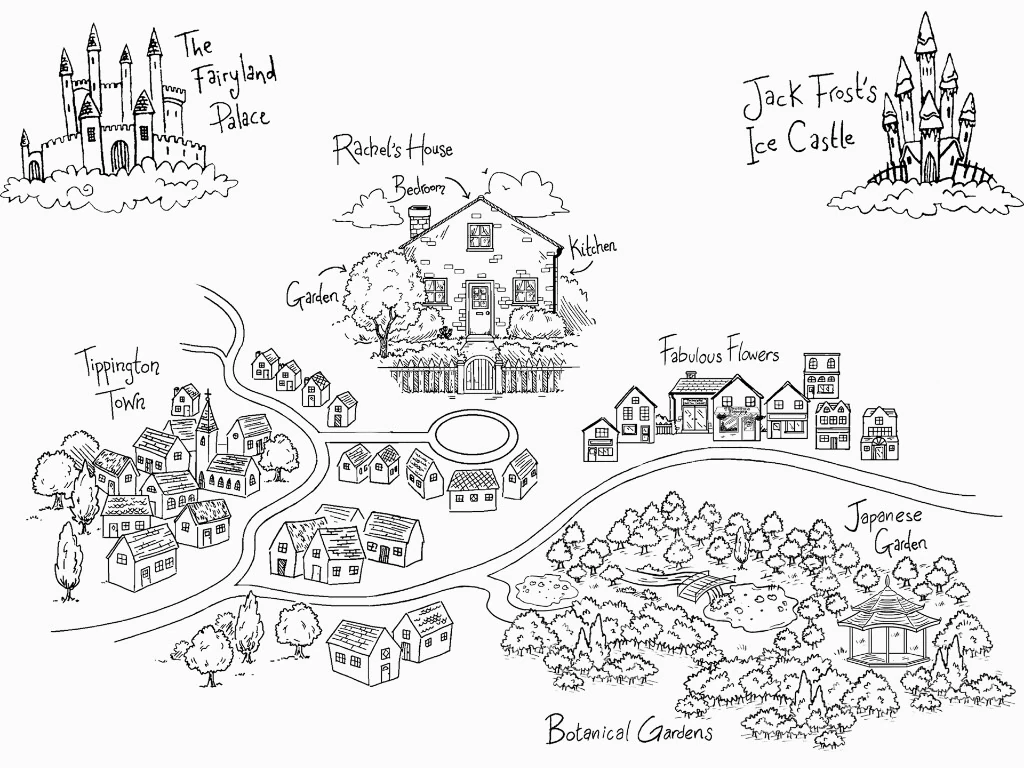 The
Fairyland
Palace
Jack Frost's
Ice Castle
Rachel's House
Bedroom
Kitchen
Garden
Fabulous Flowers
Tippington
Town
Japanese
Garden
Botanical Gardens